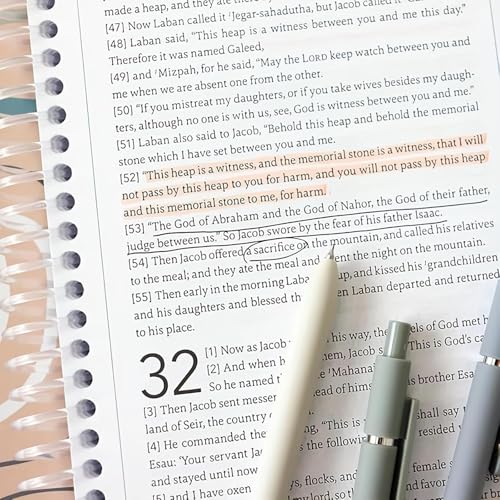 made a heap, and they ate there
[47] Now Laban called it ʲJegar-sahadutha, but Jacob called it
[48] Laban said, “This heap is a witness between you and me this day.”
Therefore it was named Galeed,
[49] and ʲMizpah, for he said, “May the LORD keep watch between you and
me when we are absent one from the other.
[50] “If you mistreat my daughters, or if you take wives besides my daugh-
ters, although no one is with us, see, God is witness between you and me.”
[51] Laban also said to Jacob, “Behold this heap and behold the memorial
stone which I have set between you and me.
[52] “This heap is a witness, and the memorial stone is a witness, that I will
not pass by this heap to you for harm, and you will not pass by this heap
and this memorial stone to me, for harm.
[53] “The God of Abraham and the God of Nahor, the God of their father,
judge between us.” So Jacob swore by the fear of his father Isaac.
[54] Then Jacob offered a sacrifice on the mountain, and called his relatives
to the meal; and they ate the meal and spent the night on the mountain.
[55] Then early in the morning up, and kissed his ˡgrandchildren
and his daughters and blessed Laban departed and returned
to his place.
32
[1] Now as Jacob his way, the God met
[2] And when Jacob “This is God's
So he named ˡMahanai
[3] Then Jacob sent of him brother Esau
land of Seir, the country
[4] He commanded “This shall say
Esau: ‘Your servant the following resided
and stayed until now
[5] and I have oxen flocks, and female
my lord, and favor